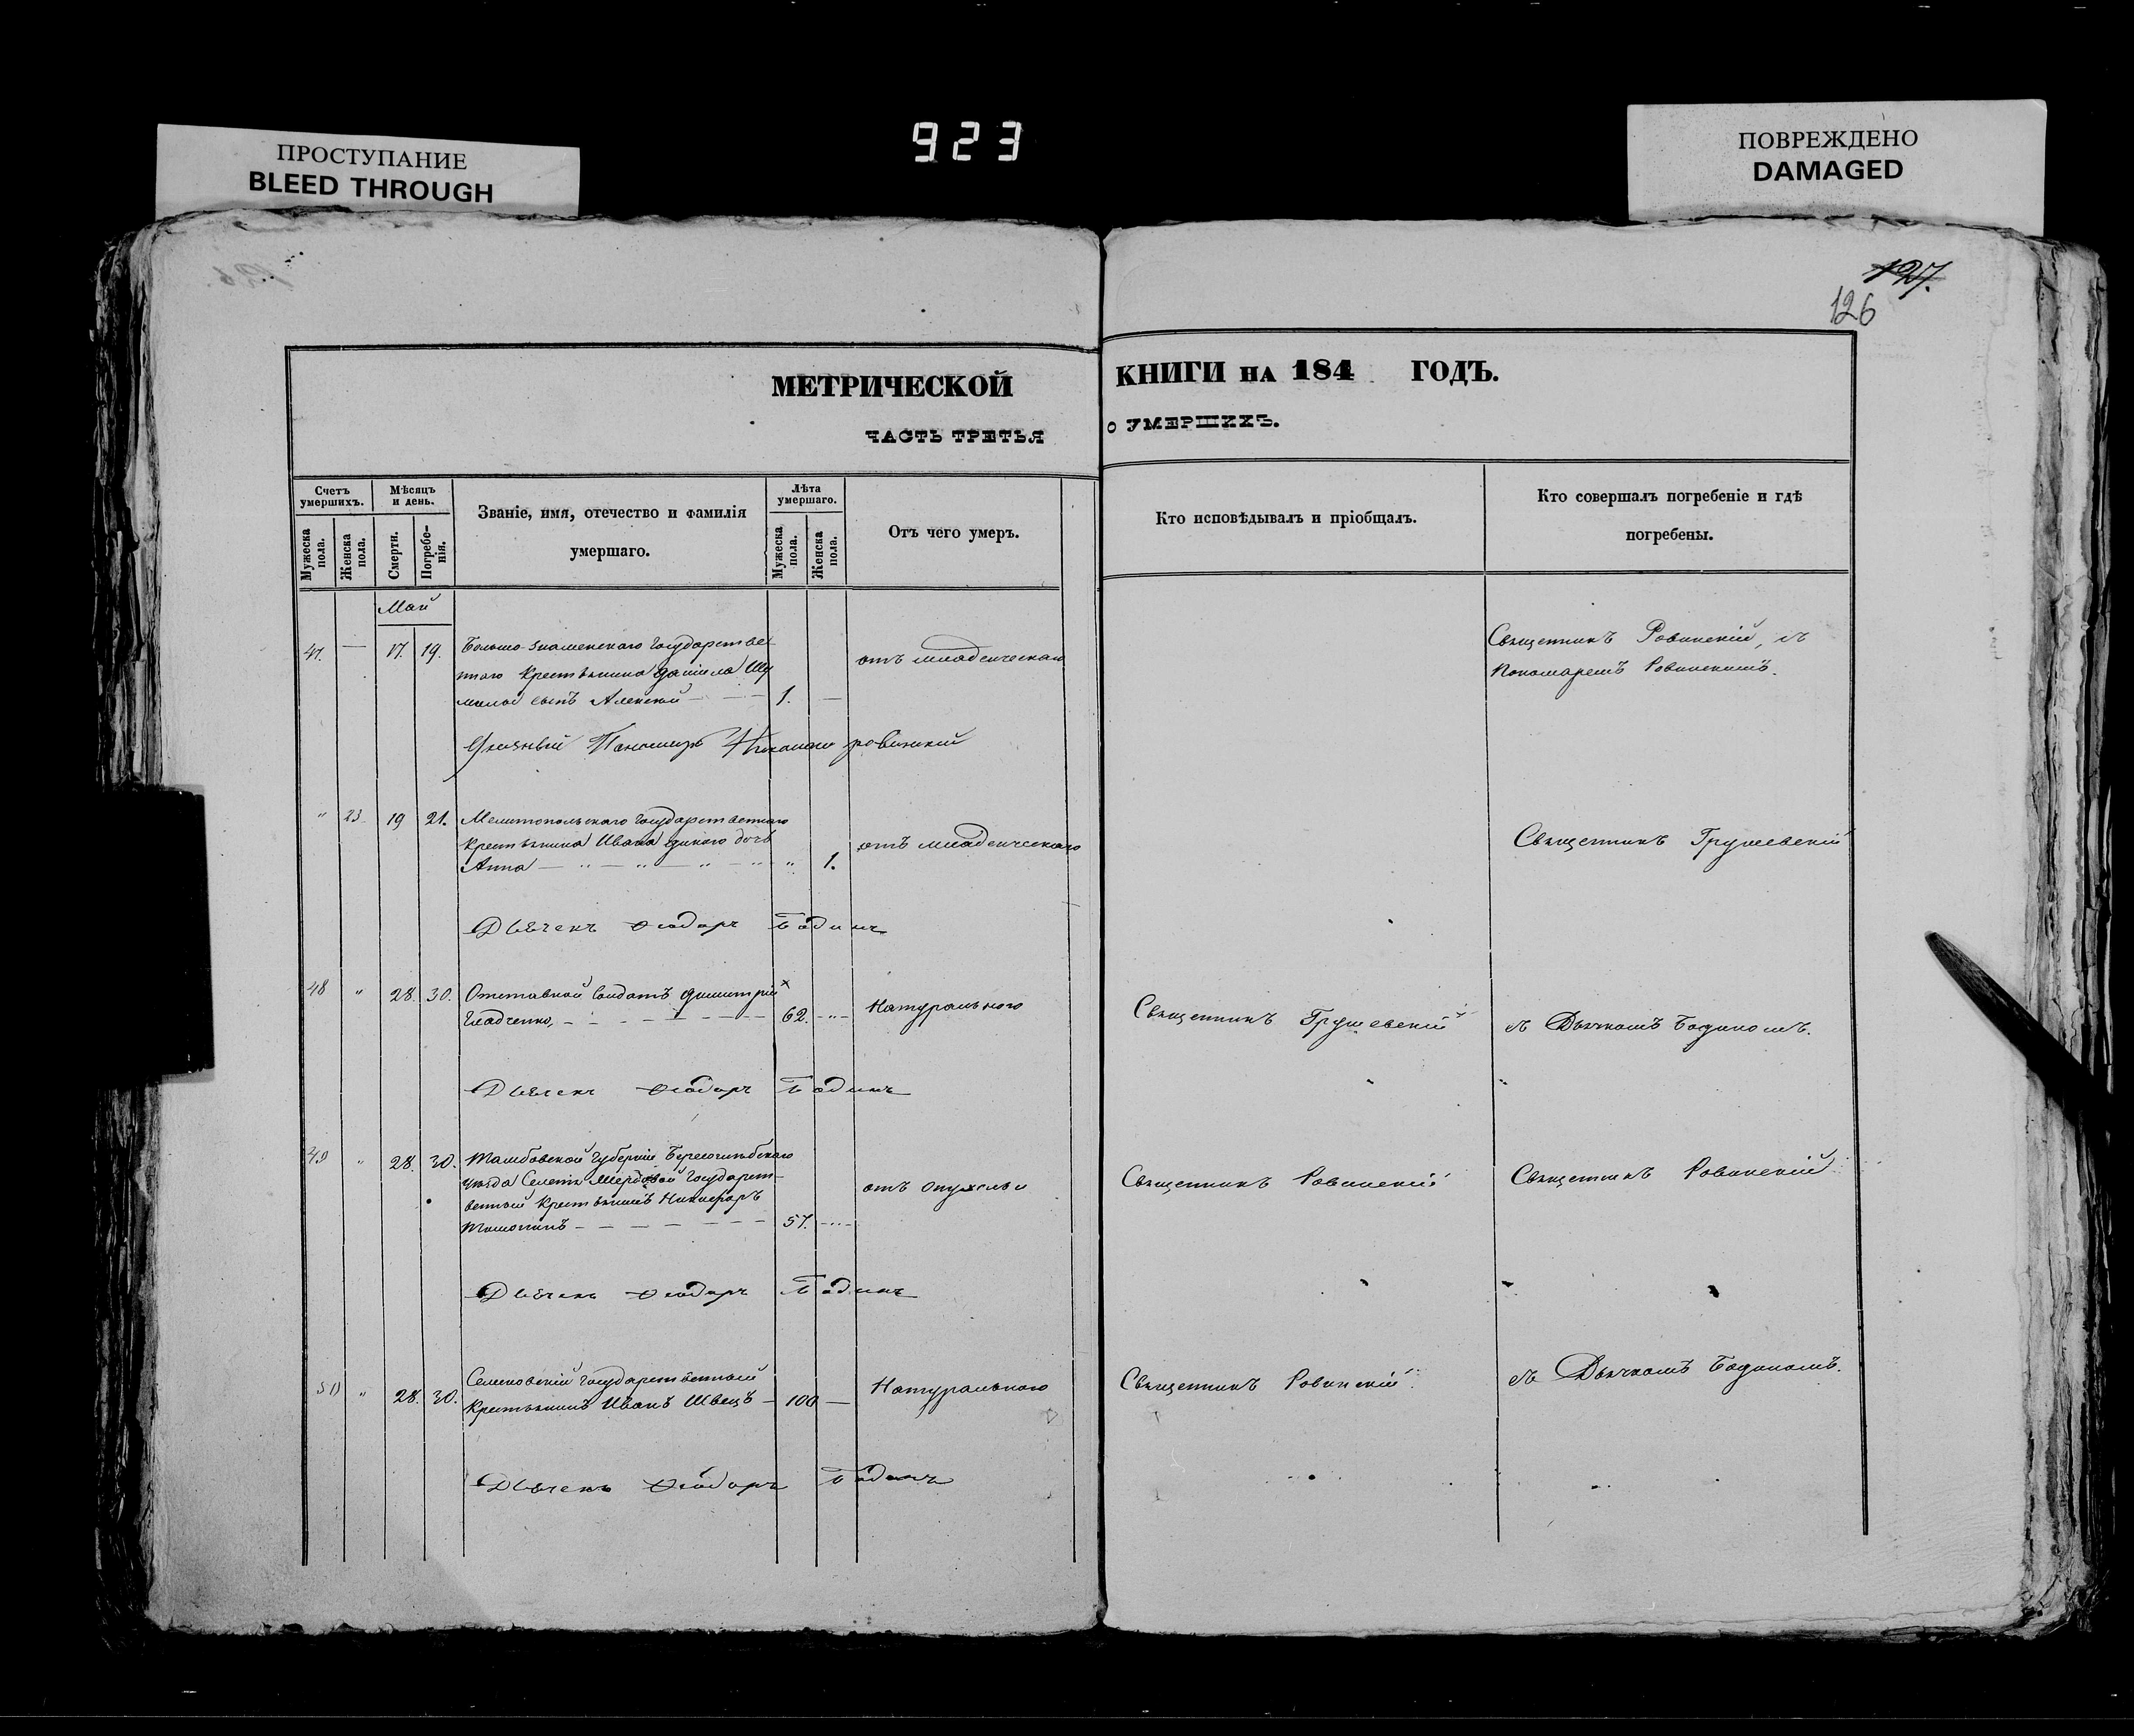 923
ПРОСТУПАНИЕ
BLEED THROUGH
ПОВРЕЖДЕНО
DAMAGED
127.
126
МЕТРИЧЕСКОЙ КНИГИ НА 184 ГОДЪ.
ЧАСТЬ ТРЕТЬЯ О УМЕРШИХЪ.
Счетъ умершихъ.
Мужеска пола.
Женска пола.
Мѣсяцъ и день.
Смерти.
Погребенія.
Званіе, имя, отечество и фамилія
умершаго.
Лѣта умершаго.
Мужеска пола.
Женска пола.
Отъ чего умеръ.
Кто исповѣдывалъ и пріобщалъ.
Кто совершалъ погребеніе и гдѣ
погребены.
Май
47. — 17. 19. Больше-Знаменскаго Государстве
ннаго Крестьянина Даніила
сынъ Алексѣй — 1. —
отъ младенческаго
Священникъ Ровинскій, съ
Пономаремъ Ровинскимъ.
Пономарь Ровинскій
" 23 19 21. Мелитопольскаго Государственнаго
Крестьянина Ивана дочь
Анна — " — " — " — " " 1.
отъ младенческаго
Священникъ Грушевскій
Дьячекъ Ѳеодоръ Бодинъ
48 " 28. 30. Отставной Солдатъ Димитрій
Гладченко, — 62. — " —
Натурального
Священникъ Грушевскій
съ Дьячкомъ Бодиномъ.
Дьячекъ Ѳеодоръ Бодинъ
49 " 28. 30. Тамбовской Губерніи
уѣзда Государст-
венный Крестьянинъ Никифоръ
— 57. — " —
отъ опухоли
Священникъ Ровинскій
Священникъ Ровинскій
Дьячекъ Ѳеодоръ Бодинъ
50 " 28. 30. Государственный
Крестьянинъ Иванъ Швецъ — 100 —
Натурального
Священникъ Ровинскій
съ Дьячкомъ Бодиномъ.
Дьячекъ Ѳеодоръ Бодинъ